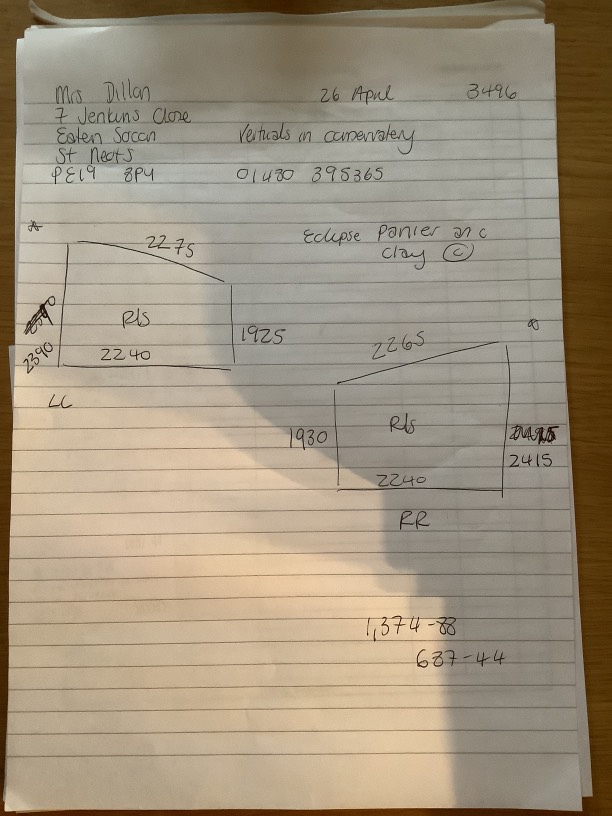 Mrs Dillan 26 April 3496
7 Jenkins Close
Eaten Socon Verticals in conservatory
St Neots
PE19 8PU 01480 395365
Eclipse Panier an c
clay C
2275
R/s
2390
2240
1925
LL
2265
1930
R/s
2415
2240
RR
1,374-88
687-44